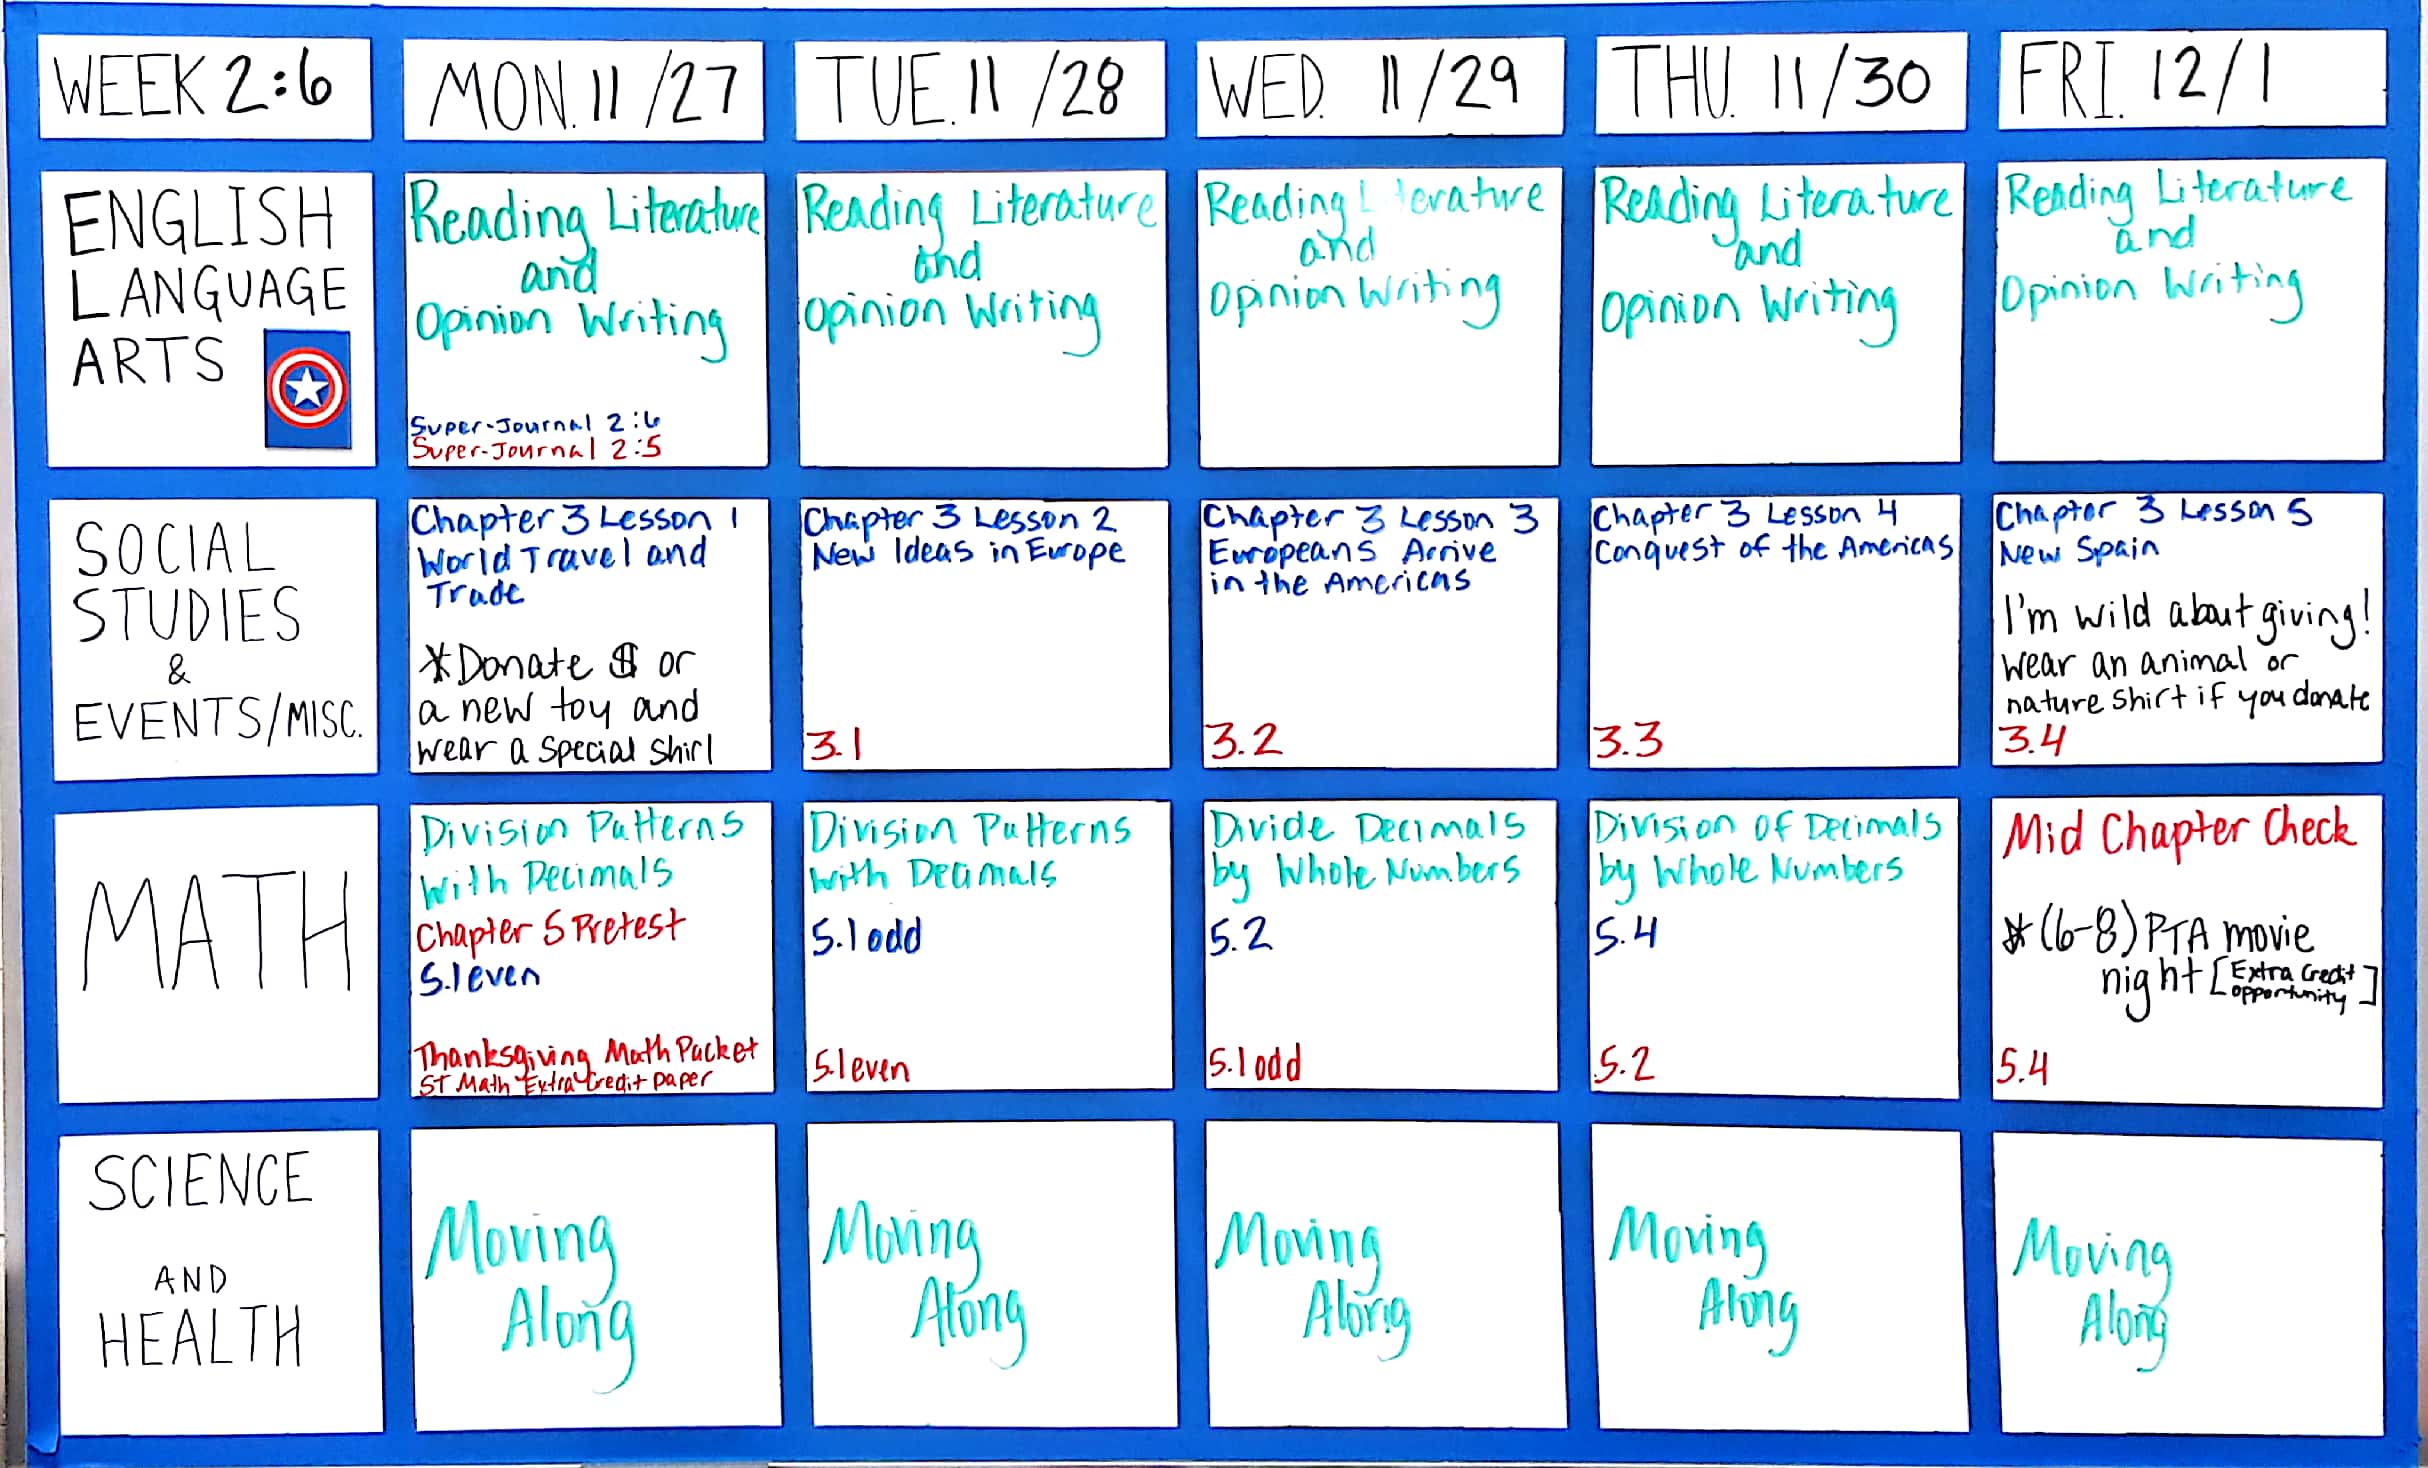 WEEK 2:6
MON. 11/27
TUE. 11/28
WED. 11/29
THU. 11/30
FRI. 12/1
ENGLISH
LANGUAGE
ARTS
Reading Literature
and
Opinion Writing
Super-Journal 2:6
Super-Journal 2:5
Reading Literature
and
Opinion Writing
Reading L terature
and
Opinion Writing
Reading Literature
and
Opinion Writing
Reading Literature
and
Opinion Writing
SOCIAL
STUDIES
&
EVENTS/MISC.
Chapter 3 Lesson 1
World Travel and
Trade
*Donate $ or
a new toy and
wear a special shirt
Chapter 3 Lesson 2
New Ideas in Europe
3.1
Chapter 3 Lesson 3
Europeans Arrive
in the Americas
3.2
Chapter 3 Lesson 4
Conquest of the Americas
3.3
Chapter 3 Lesson 5
New Spain
I'm wild about giving!
wear an animal or
nature shirt if you donate
3.4
MATH
Division Patterns
with Decimals
Chapter 5 Pretest
5.1 even
Thanksgiving Math Packet
ST Math Extra Credit paper
Division Patterns
with Decimals
5.1 odd
5.1 even
Divide Decimals
by Whole Numbers
5.2
5.1 odd
Division of Decimals
by Whole Numbers
5.4
5.2
Mid Chapter Check
*(6-8) PTA movie
night [Extra Credit
opportunity]
5.4
SCIENCE
AND
HEALTH
Moving
Along
Moving
Along
Moving
Along
Moving
Along
Moving
Along